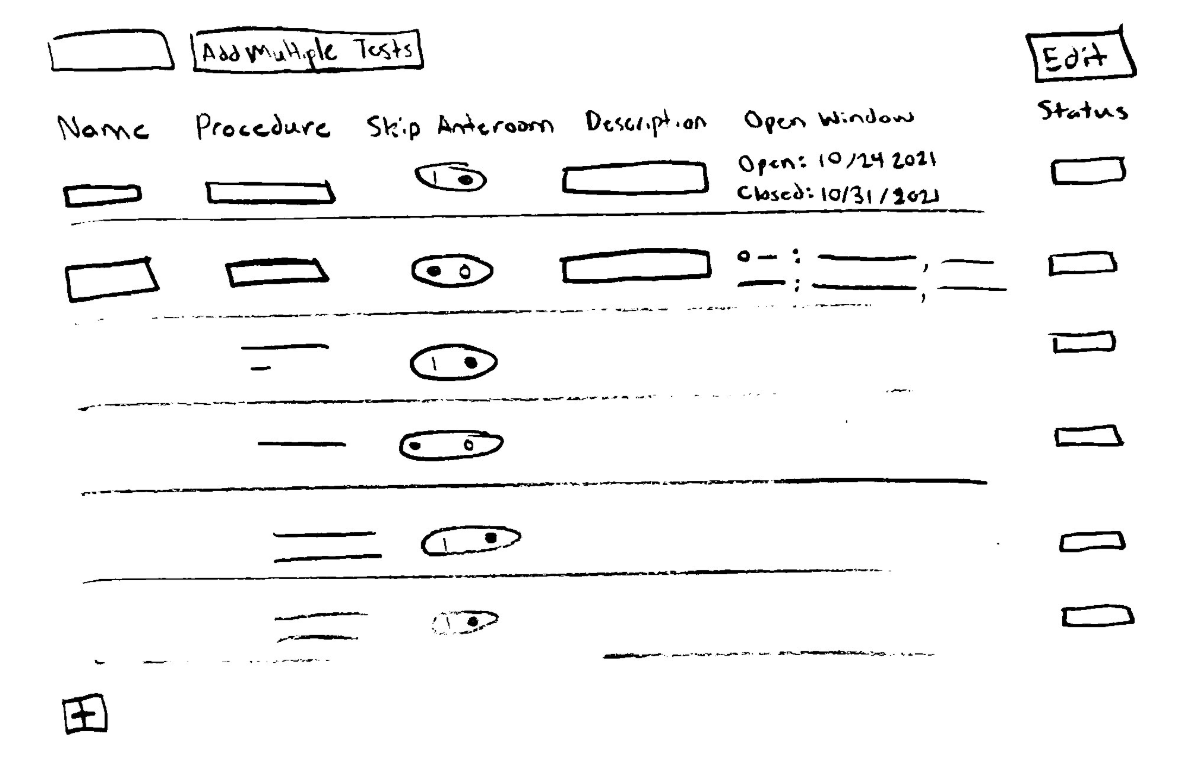 Add Multiple Tests
Edit
Name Procedure Skip Anteroom Description Open Window Status
Open: 10/24 2021
Closed: 10/31/2021
+